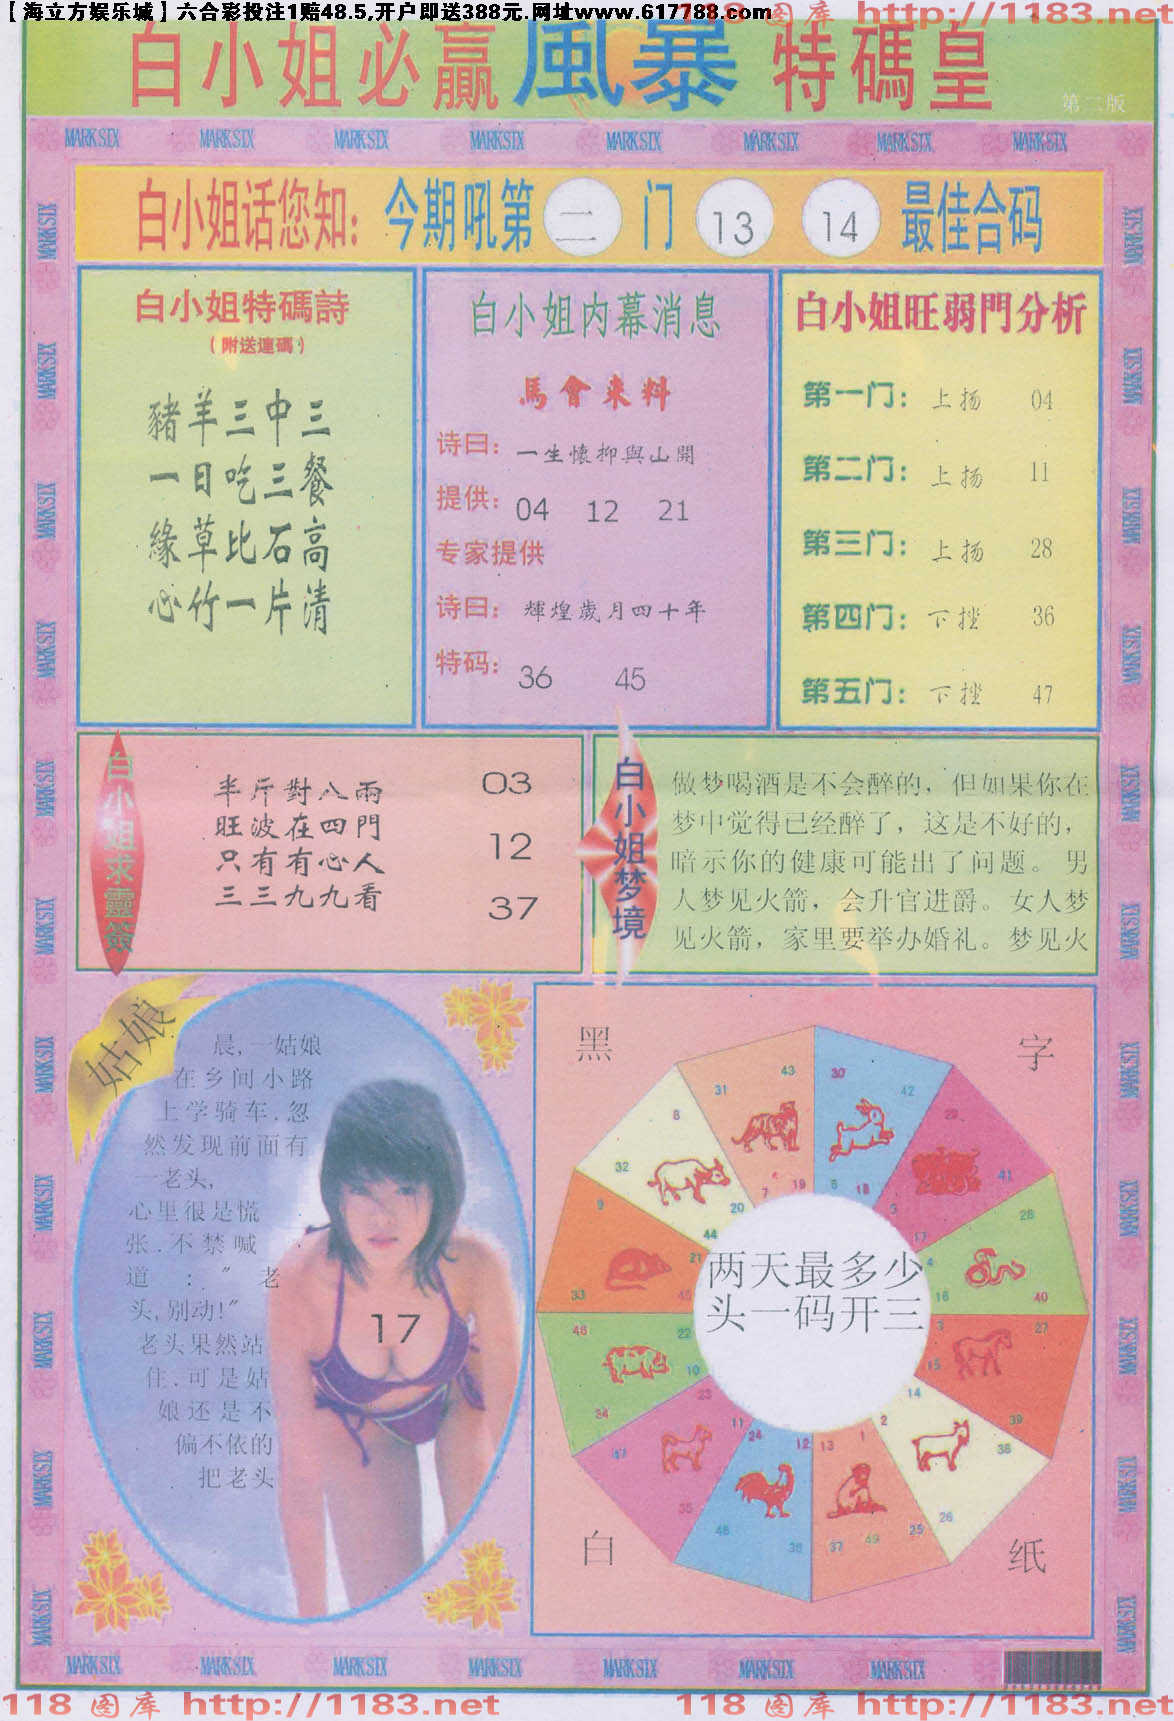 【海立方娱乐城】六合彩投注1赔48.5,开户即送388元.网址www.617788.com
118 图库 http://1183.net
白小姐必赢風暴 特碼皇
第二版
MARK SIX MARK SIX MARK SIX MARK SIX MARK SIX MARK SIX MARK SIX MARK SIX
白小姐话您知: 今期吼第 二 门 13 14 最佳合码
白小姐特碼詩
(附送連碼)
豬羊三中三
一日吃三餐
緣草比石高
心竹一片清
白小姐内幕消息
馬會来料
诗曰: 一生懷抑與山開
提供: 04 12 21
专家提供
诗曰: 輝煌歲月四十年
特码: 36 45
白小姐旺弱門分析
第一门: 上扬 04
第二门: 上扬 11
第三门: 上扬 28
第四门: 下挫 36
第五门: 下挫 47
白小姐求靈簽
半斤對八兩
旺波在四門
只有有心人
三三九九看
03
12
37
白小姐梦境
做梦喝酒是不会醉的，但如果你在
梦中觉得已经醉了，这是不好的，
暗示你的健康可能出了问题。男
人梦见火箭，会升官进爵。女人梦
见火箭，家里要举办婚礼。梦见火
姑娘
晨,一姑娘
在乡间小路
上学骑车.忽
然发现前面有
一老头,
心里很是慌
张.不禁喊
道:"老
头,别动!"
老头果然站
住.可是姑
娘还是不
偏不依的
把老头
17
黑 字
43 30
31 42
8 29
32 41
7 19 6 18
20 5
44 17
9 28
21 4
33 45 16 40
46 22 3 27
10 15
34 23 14 39
47 11 24 12 13 1 2 38
35 48 36 37 49 25 26
两天最多少
头一码开三
白 纸
MARK SIX MARK SIX MARK SIX MARK SIX MARK SIX MARK SIX MARK SIX
118 图库 http://1183.net 118 图库 http://1183.net